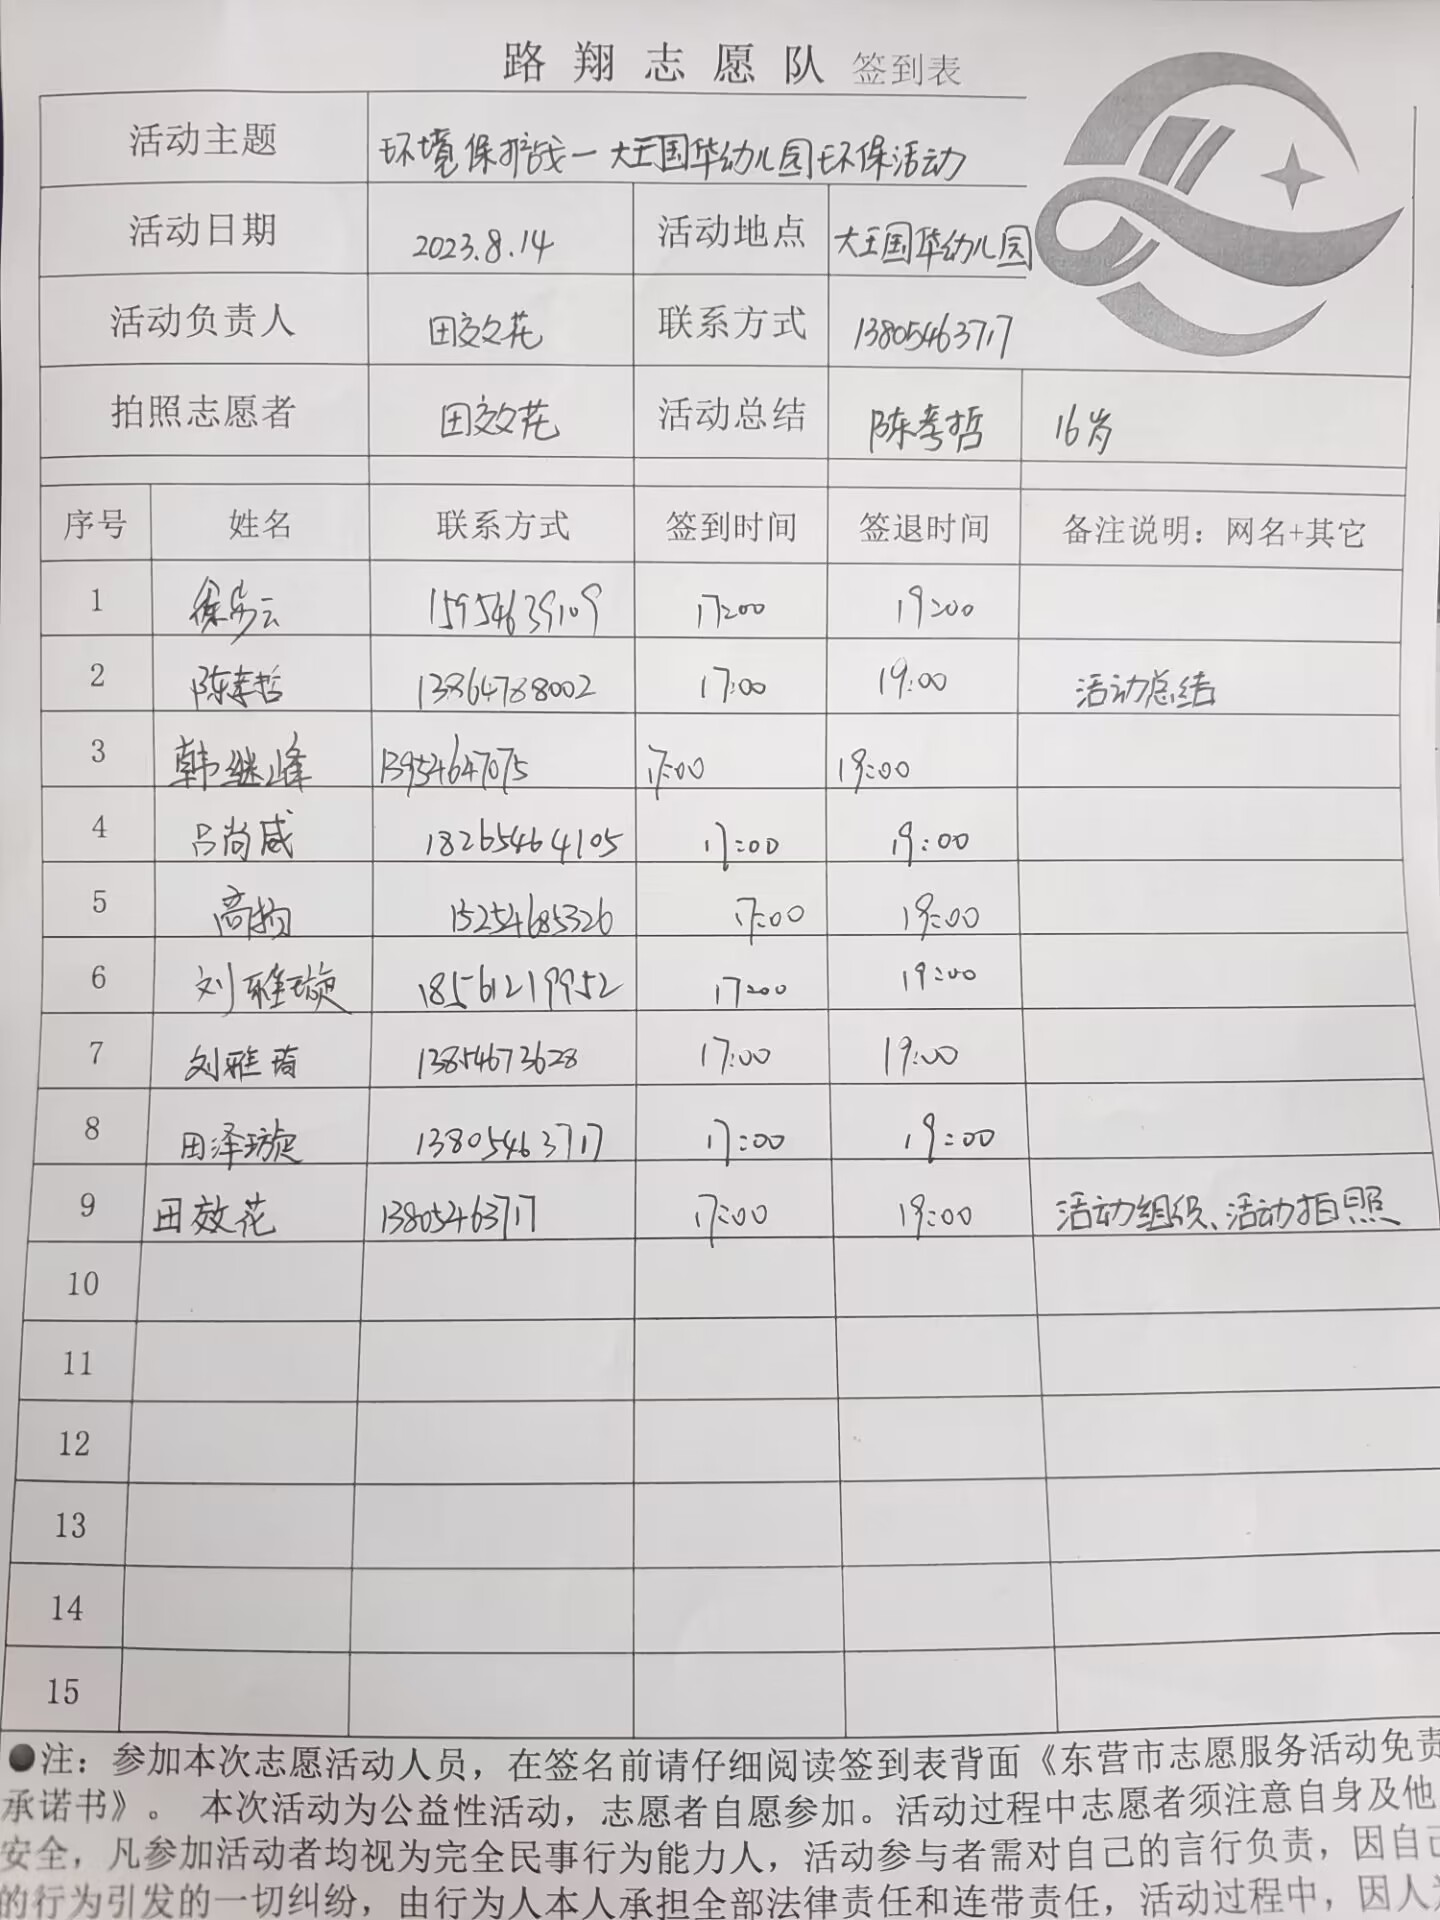 路翔志愿队 签到表
活动主题 环境保护战一大王国华幼儿园环保活动
活动日期 2023.8.14 活动地点 大王国华幼儿园
活动负责人 田效花 联系方式 13805463717
拍照志愿者 田效花 活动总结 陈孝哲 16岁
序号 姓名 联系方式 签到时间 签退时间 备注说明：网名+其它
1 15954639109 17:00 19:00
2 陈孝哲 13864788002 17:00 19:00 活动总结
3 韩继峰 13954647075 17:00 19:00
4 吕尚咸 18265464105 17:00 19:00
5 15254685326 17:00 19:00
6 刘雅璇 18561219952 17:00 19:00
7 刘雅琦 13854673628 17:00 19:00
8 田泽璇 13805463717 17:00 19:00
9 田效花 13805463717 17:00 19:00 活动组织、活动拍照
10
11
12
13
14
15
●注：参加本次志愿活动人员，在签名前请仔细阅读签到表背面《东营市志愿服务活动免责
承诺书》。 本次活动为公益性活动，志愿者自愿参加。活动过程中志愿者须注意自身及他
安全，凡参加活动者均视为完全民事行为能力人，活动参与者需对自己的言行负责，因自己
的行为引发的一切纠纷，由行为人本人承担全部法律责任和连带责任，活动过程中，因人为